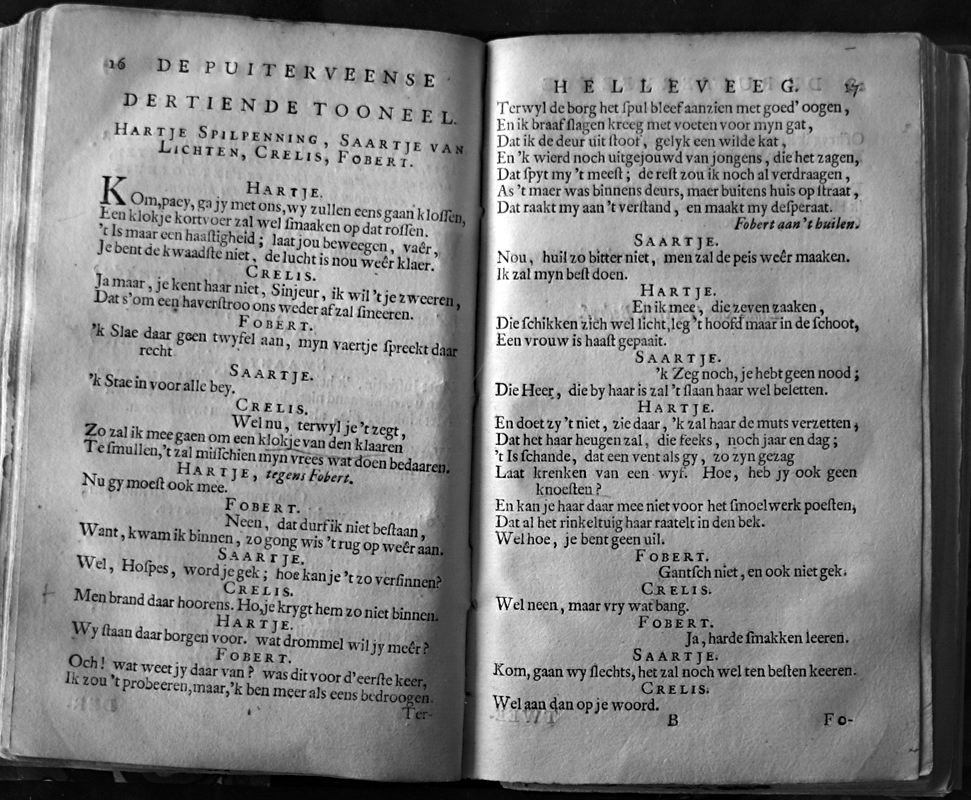 16 DE PUITERVEENSE
DERTIENDE TOONEEL.
HARTJE SPILPENNING, SAARTJE VAN
LICHTEN, CRELIS, FOBERT.
HARTJE.
KOm, paey, ga jy met ons, wy zullen eens gaan klossen,
Een klokje kortvoer zal wel smaaken op dat rossen.
't Is maar een haastigheid; laat jou beweegen, vaêr,
Je bent de kwaadste niet, de lucht is nou weêr klaer.
CRELIS.
Ja maar, je kent haar niet, Sinjeur, ik wil 't je zweeren,
Dat s'om een haverstroo ons weder af zal smeeren.
FOBERT.
'k Slae daar geen twyfel aan, myn vaertje spreekt daar
recht
SAARTJE.
'k Stae in voor alle bey.
CRELIS.
Wel nu, terwyl je 't zegt,
Zo zal ik mee gaen om een klokje van den klaaren
Te smullen, 't zal misschien myn vrees wat doen bedaaren.
HARTJE, tegens Fobert.
Nu gy moest ook mee.
FOBERT.
Neen, dat durf ik niet bestaan,
Want, kwam ik binnen, zo gong wis 't rug op weêr aan.
SAARTJE.
Wel, Hospes, word je gek; hoe kan je 't zo versinnen?
CRELIS.
Men brand daar hoorens. Ho, je krygt hem zo niet binnen.
HARTJE.
Wy staan daar borgen voor. wat drommel wil jy meêr?
FOBERT.
Och! wat weet jy daar van? was dit voor d'eerste keer,
Ik zou 't probeeren, maar, 'k ben meer als eens bedroogen.
Ter-
HELLEVEEG. 17
Terwyl de borg het spul bleef aanzien met goed' oogen,
En ik braaf slagen kreeg met voeten voor myn gat,
Dat ik de deur uit stoof, gelyk een wilde kat,
En 'k wierd noch uitgejouwd van jongens, die het zagen,
Dat spyt my 't meest; de rest zou ik noch al verdraagen,
As 't maer was binnens deurs, maer buitens huis op straat,
Dat raakt my aan 't verstand, en maakt my desperaat.
Fobert aan 't huilen.
SAARTJE.
Nou, huil zo bitter niet, men zal de peis weêr maaken.
Ik zal myn best doen.
HARTJE.
En ik mee, die zeven zaaken,
Die schikken zich wel licht, leg 't hoofd maar in de schoot,
Een vrouw is haast gepaait.
SAARTJE.
'k Zeg noch, je hebt geen nood;
Die Heer, die by haar is zal 't slaan haar wel beletten.
HARTJE.
En doet zy 't niet, zie daar, 'k zal haar de muts verzetten,
Dat het haar heugen zal, die feeks, noch jaar en dag;
't Is schande, dat een vent als gy, zo zyn gezag
Laat krenken van een wyf. Hoe, heb jy ook geen
knoesten?
En kan je haar daar mee niet voor het smoelwerk poesten,
Dat al het rinkeltuig haar raatelt in den bek.
Wel hoe, je bent geen uil.
FOBERT.
Gantsch niet, en ook niet gek.
CRELIS.
Wel neen, maar vry wat bang.
FOBERT.
Ja, harde smakken leeren.
SAARTJE.
Kom, gaan wy slechts, het zal noch wel ten besten keeren.
CRELIS.
Wel aan dan op je woord.
B Fo-